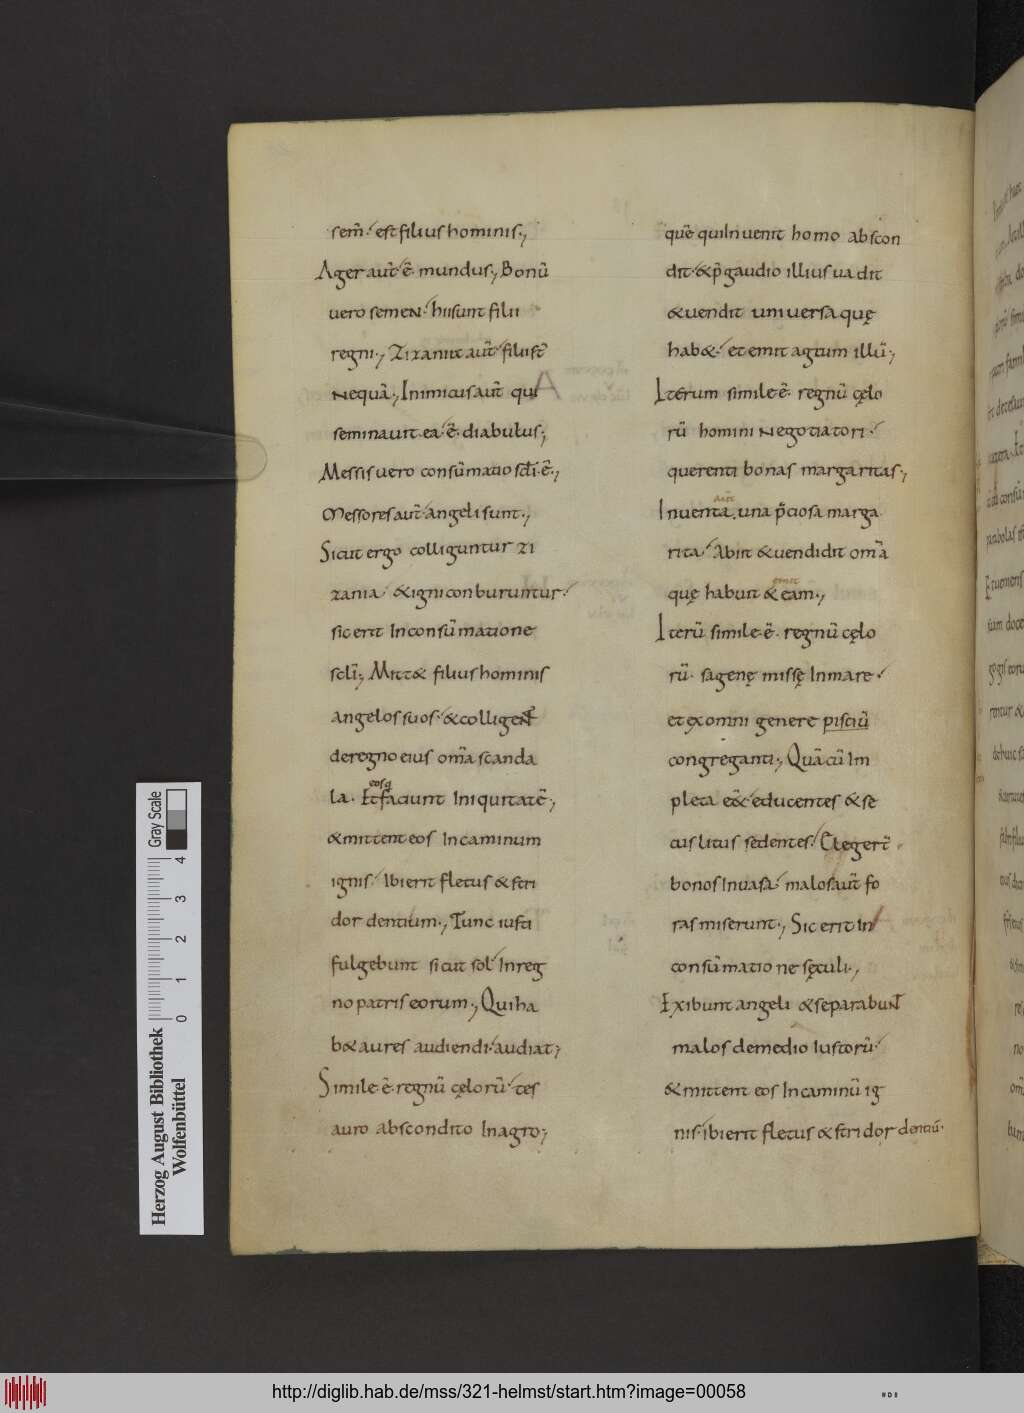 sem̄. est filius hominis.,
Ager aut̄ ē mundus., Bonū
uero semen. hii sunt filii
regni., Zizaniae aut̄ filii st̄
nequā., Inimicus aut̄ qui
seminauit ea. ē. diabulus;
Messis uero consūmatio scl̄i. ē.,
Messores aut̄ angeli sunt.,
Sicut ergo colliguntur zi
zania & igni conburuntur.
sic erit In consūmatione
scl̄i; Mitt& filius hominis
angelos suos. & colligent
de regno eius om̄a scanda
eosq
la. Et faciunt Iniquitatē;
& mittent eos In caminum
ignis. Ibi erit fletus & stri
dor dentium., Tunc iusti
fulgebunt sicut sol In reg
no patris eorum., Qui ha
b& aures audiendi. audiat;
Simile. ē. regnū cęlorū. tes
auro abscondito In agro;
quē qui Inuenit homo abscon
dit. & p̄ gaudio illius uadit
& uendit uniuersa quę
hab&. et emit agrum illū.,
Iterum simile ē. regnū cęlo
rū homini negotiatori.
querenti bonas margaritas.,
aut̄
Inuenta. una p̄ciosa marga
rita. Abiit & uendidit om̄a
emit
quę habuit & eam.,
Iterū simile. ē. regnū cęlo
rū. sagenę missę In mare.
et ex omni genere pisciū
congreganti., Quā cū Im
pleta eēt educentes & se
cus litus sedentes. Elegert̄
bonos In uasa. malos aut̄ fo
ras miserunt., Sic erit In
consūmatione sęculi.,
Exibunt angeli & separabunt
malos de medio Iustorū.
& mittent eos In caminū ig
nis. ibi erit fletus & stridor dentiū.
Herzog August Bibliothek
Wolfenbüttel
0 1 2 3 4
Gray Scale
http://diglib.hab.de/mss/321-helmst/start.htm?image=00058